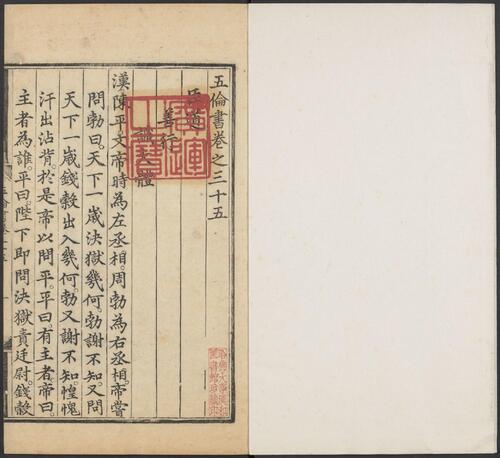 五倫書卷之三十五
臣道
善行
識大體
漢陳平文帝時為左丞相。周勃為右丞相。帝嘗
問勃曰。天下一歲決獄幾何。勃謝不知。又問
天下一歲錢穀出入幾何。勃又謝不知。惶愧
汗出沾背。於是帝以問平。平曰。有主者。帝曰。
主者為誰。平曰。陛下即問決獄責廷尉。錢穀